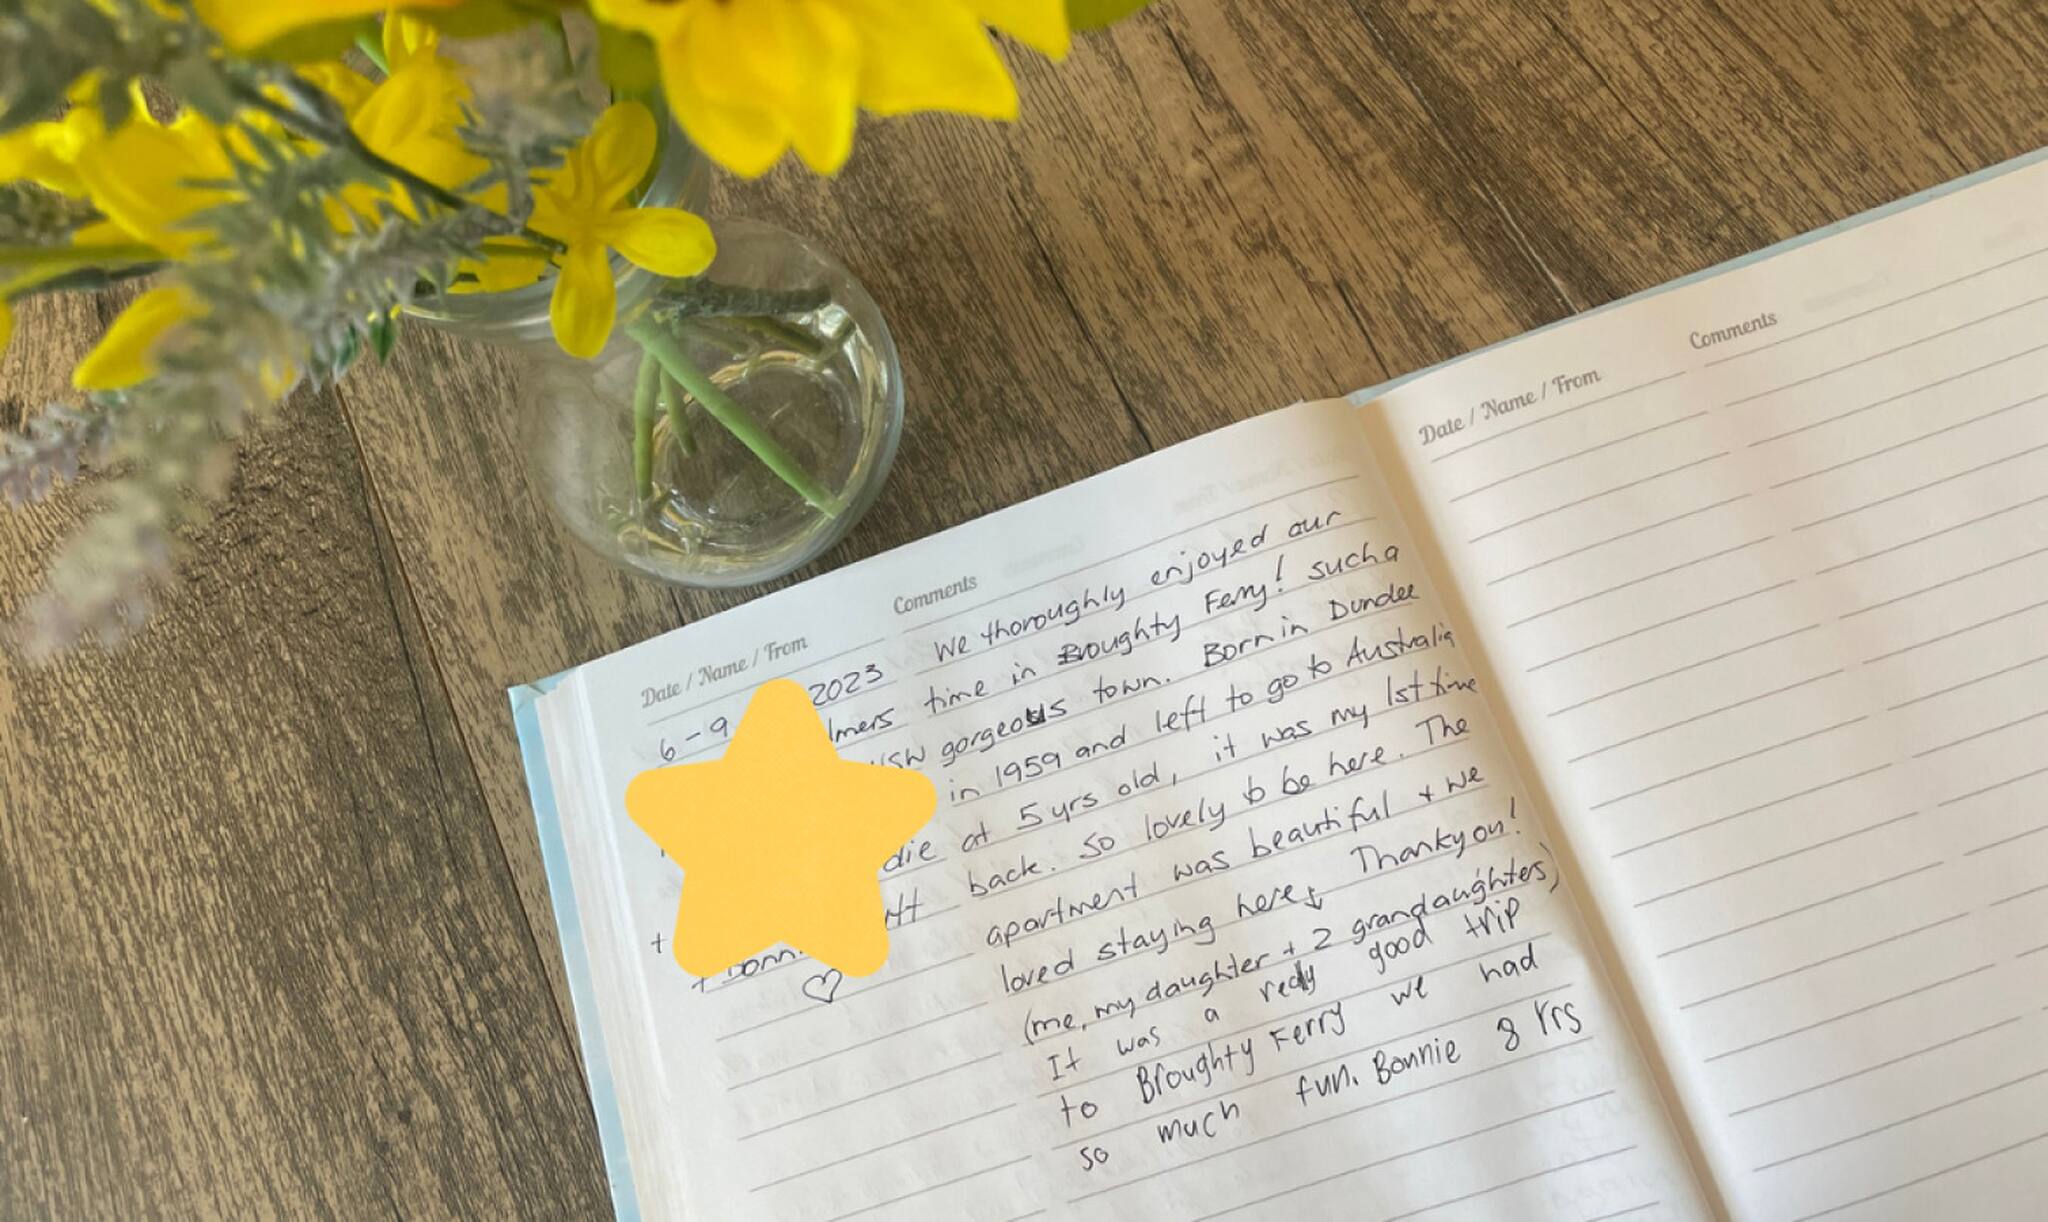 Date / Name / From Comments
6 - 9 2023 We thoroughly enjoyed our
lmers time in Broughty Ferry! such a
NSW gorgeous town. Born in Dundee
in 1959 and left to go to Australia
die at 5 yrs old, it was my 1st time
back. So lovely to be here. The
+ apartment was beautiful + we
+ loved staying here. Thankyou!
♡ (me, my daughter + 2 grandaughters)
It was a really good trip
to Broughty Ferry we had
so much fun. Bonnie 8 Yrs
Date / Name / From Comments